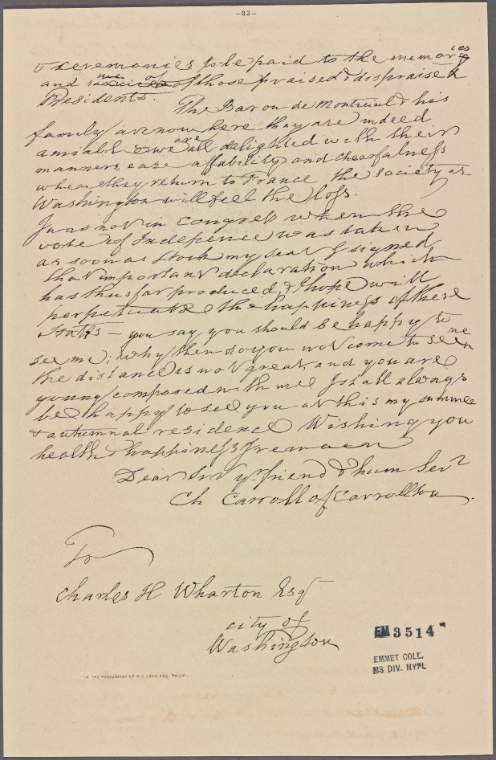 -82-
& ceremonies to be paid to the memories
and of those praised & dispraised
Presidents. The Baron de Montreuil & his
family are now here they are indeed
amiable & we are all delighted with their
manners, ease affability and cheerfulness
when they return to France the society at
Washington will feel the loss.
I was not in congress when the
vote of Indepence was taken
as soon as I took my seat I signed
that important declaration which
has thus far produced, & I hope will
perpetuate the happiness of these
States — you say you should be happy to
see me; why then do you not come to see me
the distance is not great, and you are
young compared with me I shall always
be happy to see you at this my summer
& autumnal residence Wishing you
health & happiness I remain
Dear Sir yr. friend & hum Servt
Ch Carroll of Carrollton.
To
Charles H Wharton Esqr
city of
Washington
EM 3514
EMMET COLL.
MS DIV. NYPL
IN THE POSSESSION OF PHILA.